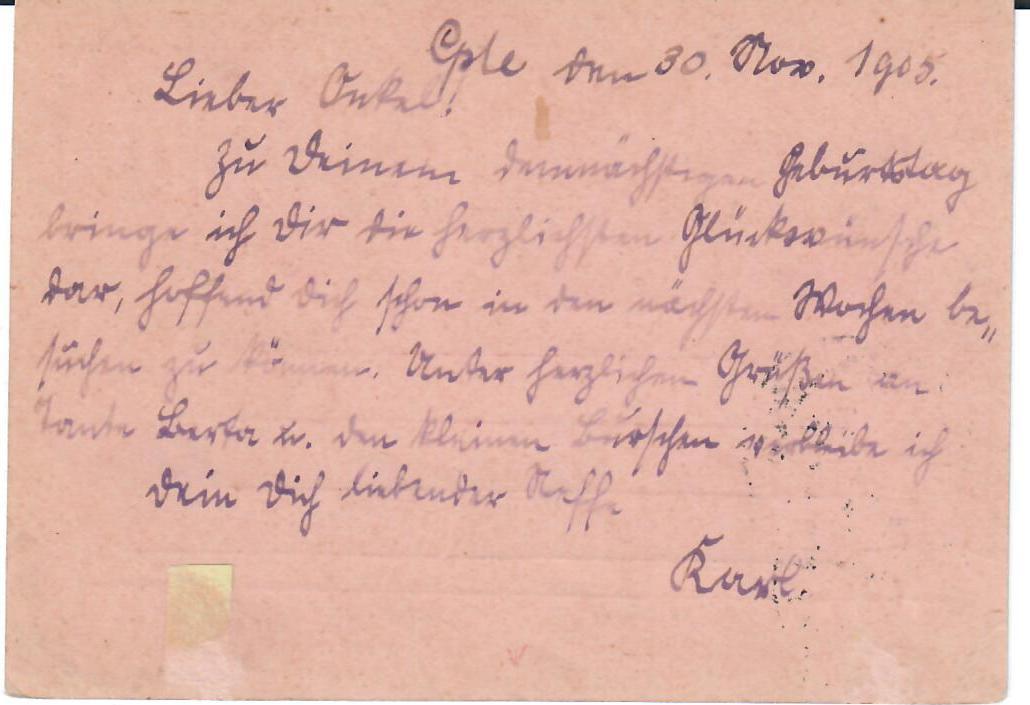 Cple den 30. Nov. 1905.
Lieber Onkel!
Zu Deinem demnächstigen Geburtstag
bringe ich Dir die herzlichsten Glückwünsche
dar, hoffend Dich schon in den nächsten Wochen be„
suchen zu können. Unter herzlichen Grüßen an
Tante Berta u. den kleinen Burschen verbleibe ich
Dein Dich liebender Neffe
Karl.